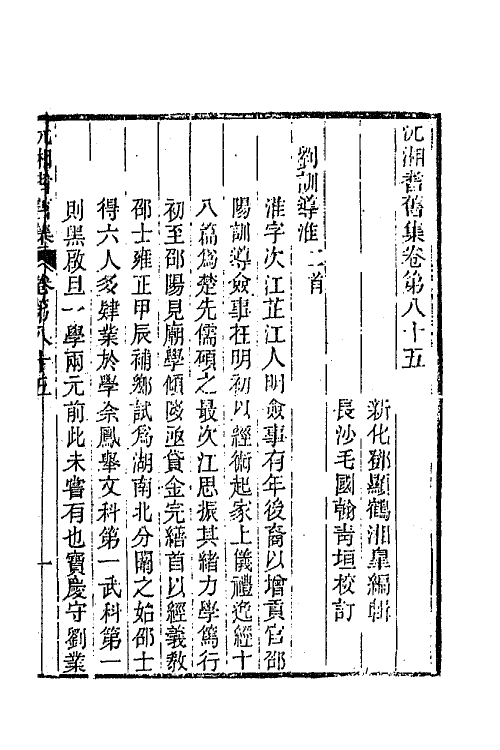 沅湘耆舊集卷第八十五
新化鄧顯鶴湘臯編輯
長沙毛國翰靑垣校訂
劉訓導淮二首
淮字次江芷江人明僉事有年後裔以增貢官邵
陽訓導僉事在明初以經術起家上儀禮逸經十
八篇爲楚先儒碩之最次江思振其緒力學篤行
初至邵陽見廟學傾陵亟貸金完繕首以經義敎
邵士雍正甲辰補鄉試爲湖南北分闈之始邵士
得六人多肄業於學余鳳舉文科第一武科第一
則黑啟旦一學兩元前此未嘗有也寶慶守劉業
沅湘耆舊集 卷第八十五 一